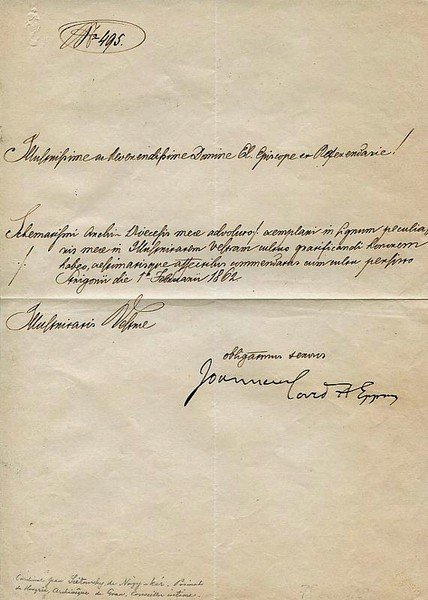 No 495.
Illustrissime ac Reverendissime Domine El. Episcope et Referendarie!
Schematismi Archi Dioecesis meae advoluto / exemplari in signum peculia,
ris meae in Illustritatem Vestram cultus gratificandi honorem
habeo, aestimatisque affectibus commendatus cum cultu persisto
Strigonii die 1a Februarii 1862
Illustritatis Vestrae
obligatissimus servus
Joannes Card A Eppus
Cardinal Jean Scitovszky de Nagy-Kér. Primat
de Hongrie, Archevêque de Gran, Conseiller intime.